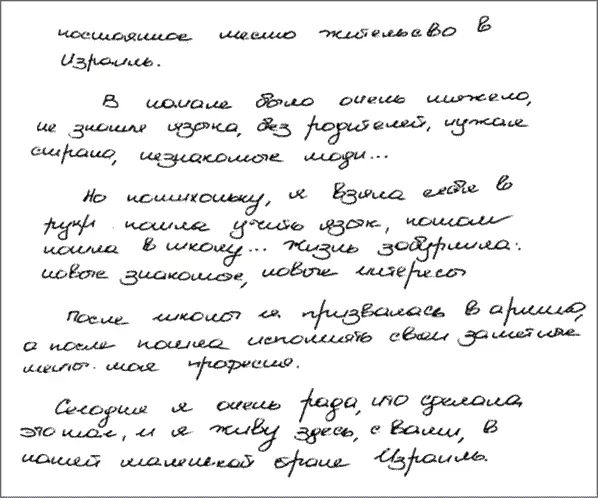 постоянное место жительсво в
Израиль.
В начале было очень тяжело,
не зная языка, без родителей, чужая
страна, незнакомые люди...
Но потихоньку, я взяла себя в
руки пошла учить язык, потом
пошла в школу... жизнь забурлила:
новые знакомые, новые интересы
После школы я призвалась в армию,
а после пошла исполнять свои заметные
мечты. моя професия.
Сегодня я очень рада, что сделала
это шаг, и я живу здесь, с вами, в
нашей маленькой стране Израиль.